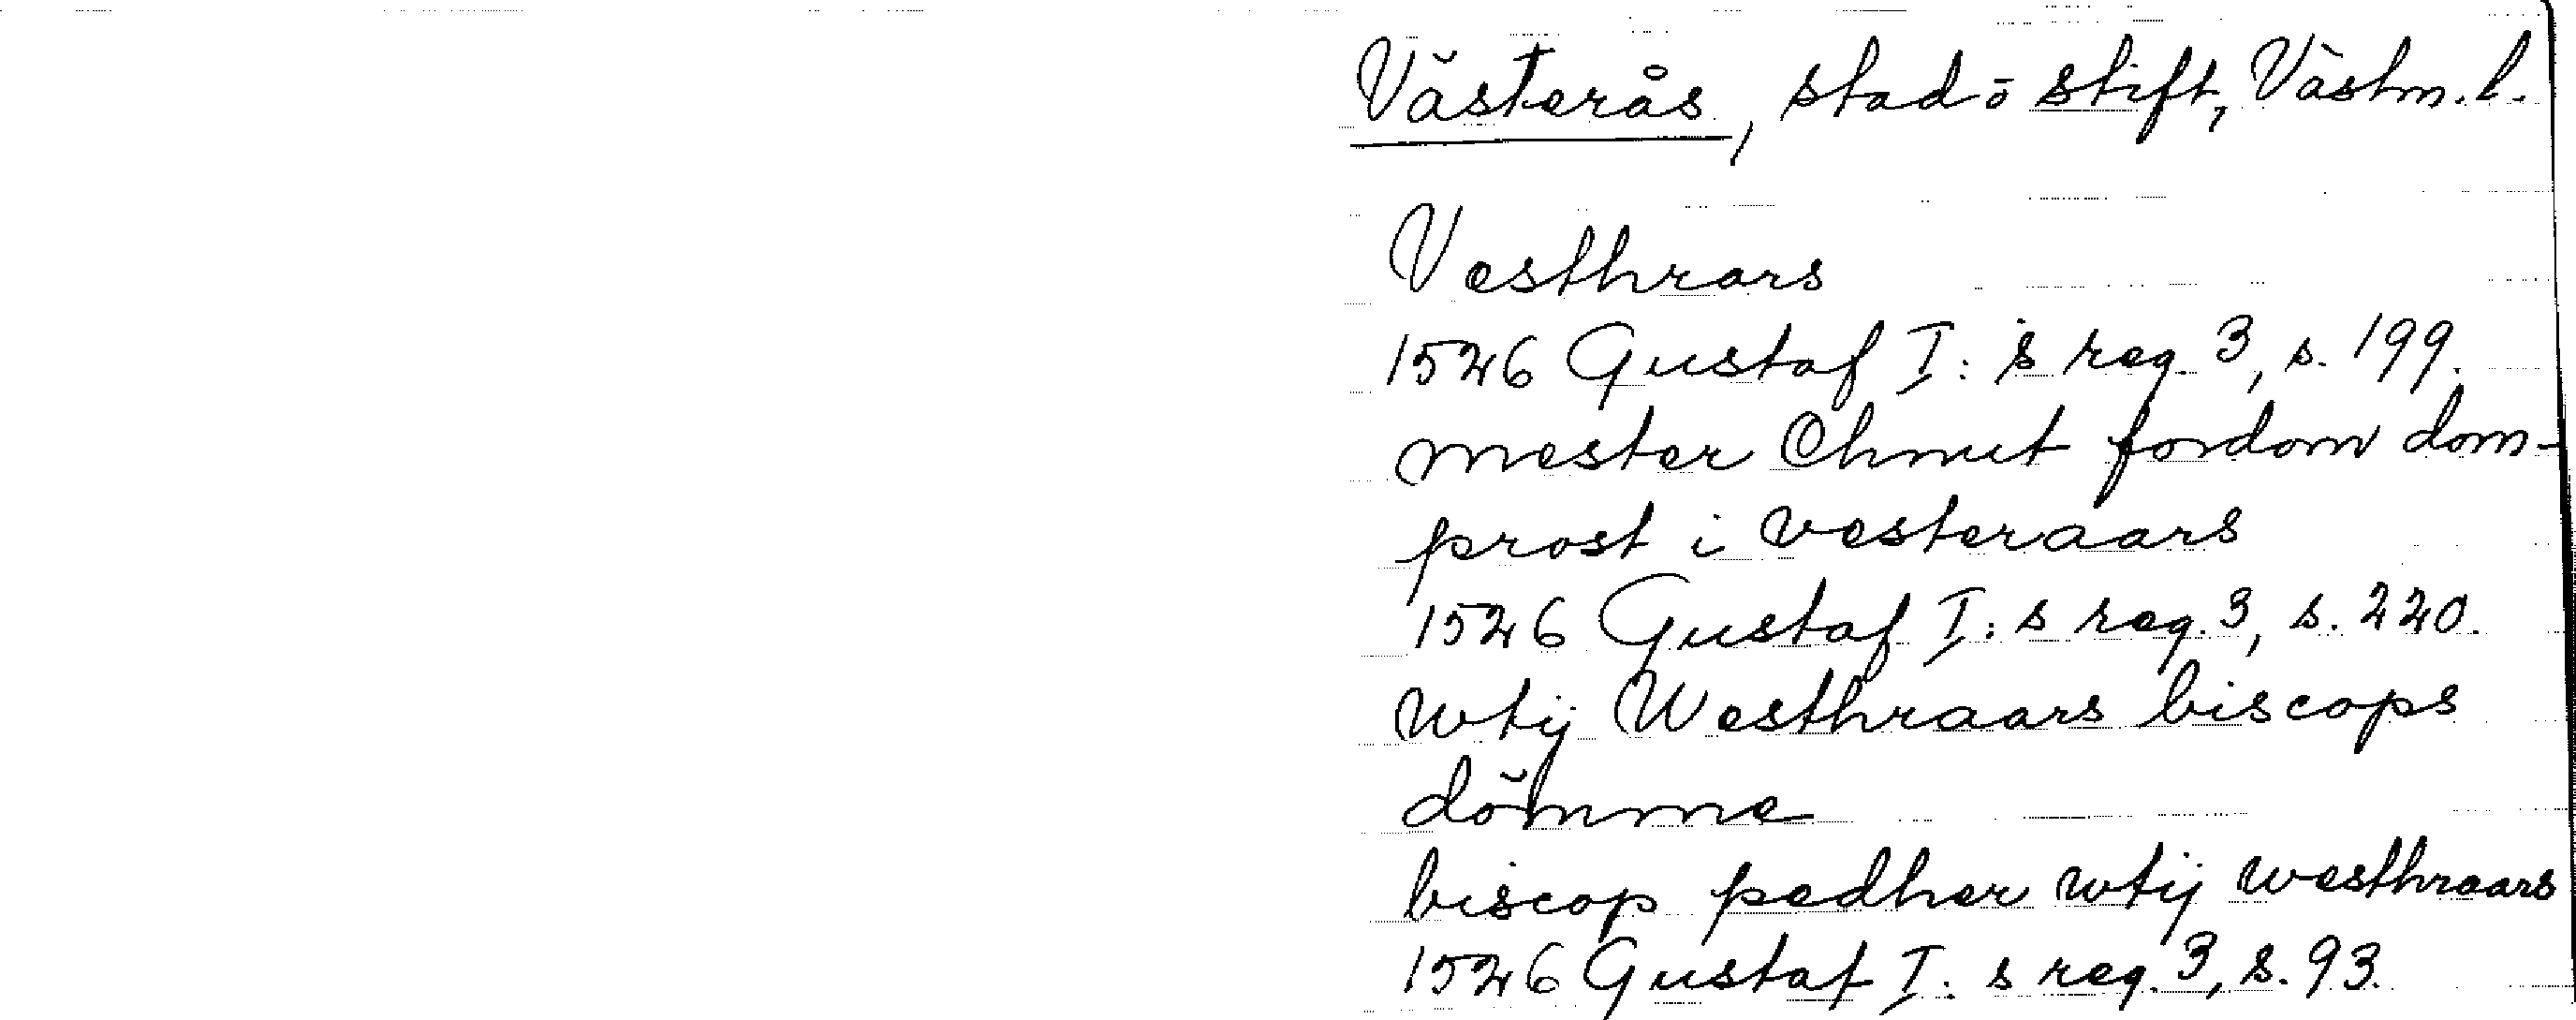 Västerås, stad o stift, Västm. l.
Vesthrars
1526 Gustaf I: s reg. 3, s. 199.
mester Chnut fordom dom-
prost i vesteraars
1526 Gustaf I: s reg. 3, s. 220.
wtij Westhraars biscops
dömme
biscop pedher wtij westhraars
1526 Gustaf I: s reg. 3, s. 93.